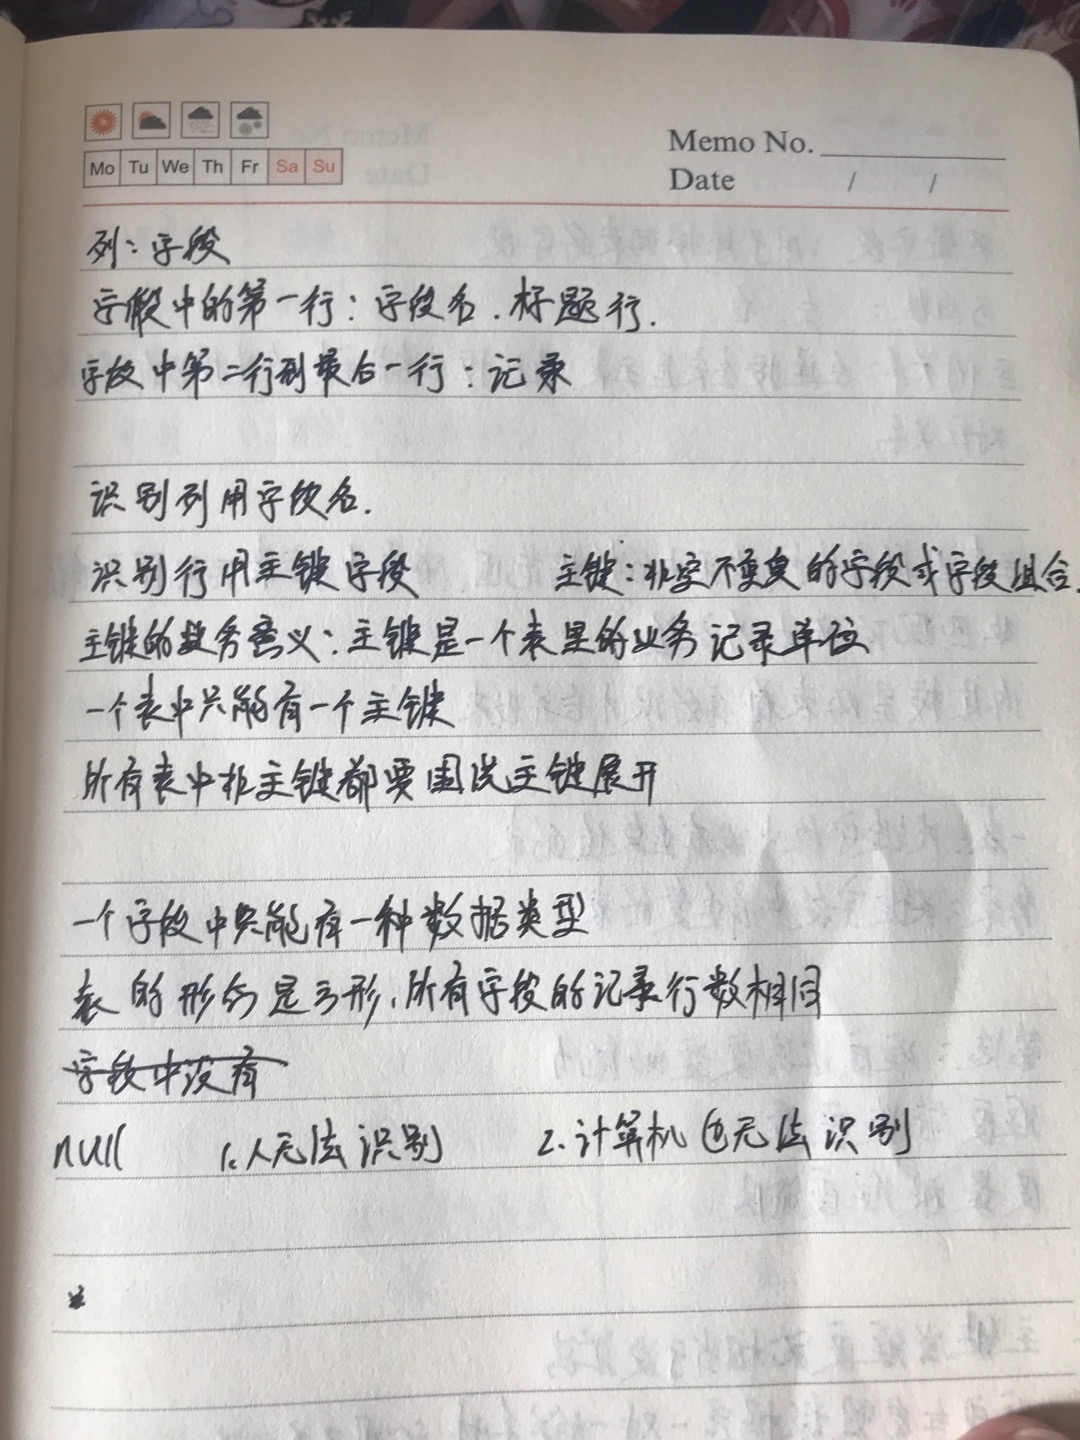 Mo Tu We Th Fr Sa Su
Memo No.
Date / /
列：字段
字段中的第一行：字段名．标题行．
字段中第二行到最后一行：记录
识别列用字段名．
识别行用主键字段 主键：非空不重复的字段或字段组合．
主键的业务意义：主键是一个表里的业务记录单位
一个表中只能有一个主键
所有表中非主键都要围绕主键展开
一个字段中只能有一种数据类型
表的形的是方形，所有字段的记录行数相同
字段中没有
null 1.人无法识别 2.计算机也无法识别